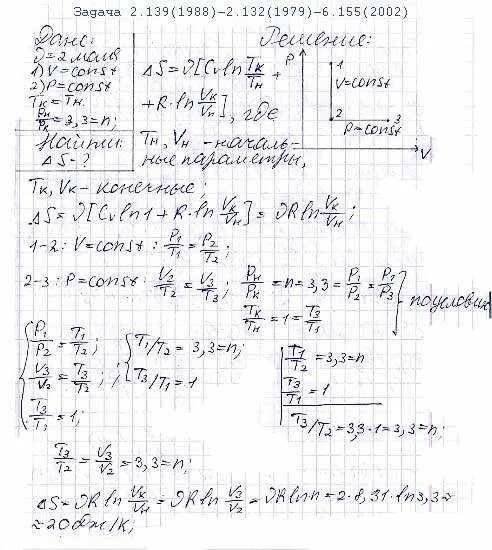 Задача 2.139(1988)-2.132(1979)-6.155(2002)
Дано:
ϑ=2 моля
1) V=const
2) P=const
Tк=Tн.
Pн/Pк=3,3=n;
Найти:
ΔS-?
Решение:
ΔS=ϑ[Cv ln Tк/Tн +
+R·ln Vк/Vн], где
Tн, Vн -началь-
ные параметры,
P
1
V=const
2
3
P=const
V
Tк, Vк- конечные;
ΔS=ϑ[Cv ln1+R·ln Vк/Vн]=ϑR ln Vк/Vн;
1-2: V=const: P1/T1=P2/T2;
2-3: P=const: V2/T2=V3/T3; Pн/Pк=n=3,3=P1/P2=P1/P3
Tк/Tн=1=T3/T1
по условию
P1/P2=T1/T2;
V3/V2=T3/T2;
T3/T1=1;
T1/T2=3,3=n;
T3/T1=1
T1/T2=3,3=n
T3/T1=1
T3/T2=3,3·1=3,3=n;
T3/T2=V3/V2=3,3=n;
ΔS=ϑR ln Vк/Vн=ϑR ln V3/V2=ϑR ln n=2·8,31·ln3,3≈
≈20 Дж/К;